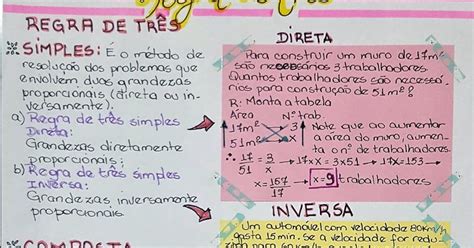 REGRA DE TRÊS
SIMPLES: É o método de
resolução dos problemas que
envolvem duas grandezas
proporcionais (direta ou in-
versamente).
a) Regra de três simples
Direta:
Grandezas diretamente
proporcionais;
b) Regra de três simples
Inversa:
Grandezas inversamente
proporcionais
COMPOSTA
DIRETA
Para construir um muro de 17m²
são necessários 3 trabalhadores.
Quantos trabalhadores são necessá-
rios para construção de
51m²?
R: Monta a tabela
Área Nº trab.
17m² 3
51m² x
Note que ao aumentar
a área do muro, aumen-
ta o nº de trabalhadores.
∴ 17/51 = 3/x → 17xX = 3x51 → 17X=153 →
X=157/17 → x=9 trabalhadores
INVERSA
Um automóvel com velocidade 80km/h
gasta 15min. Se a velocidade for redu-